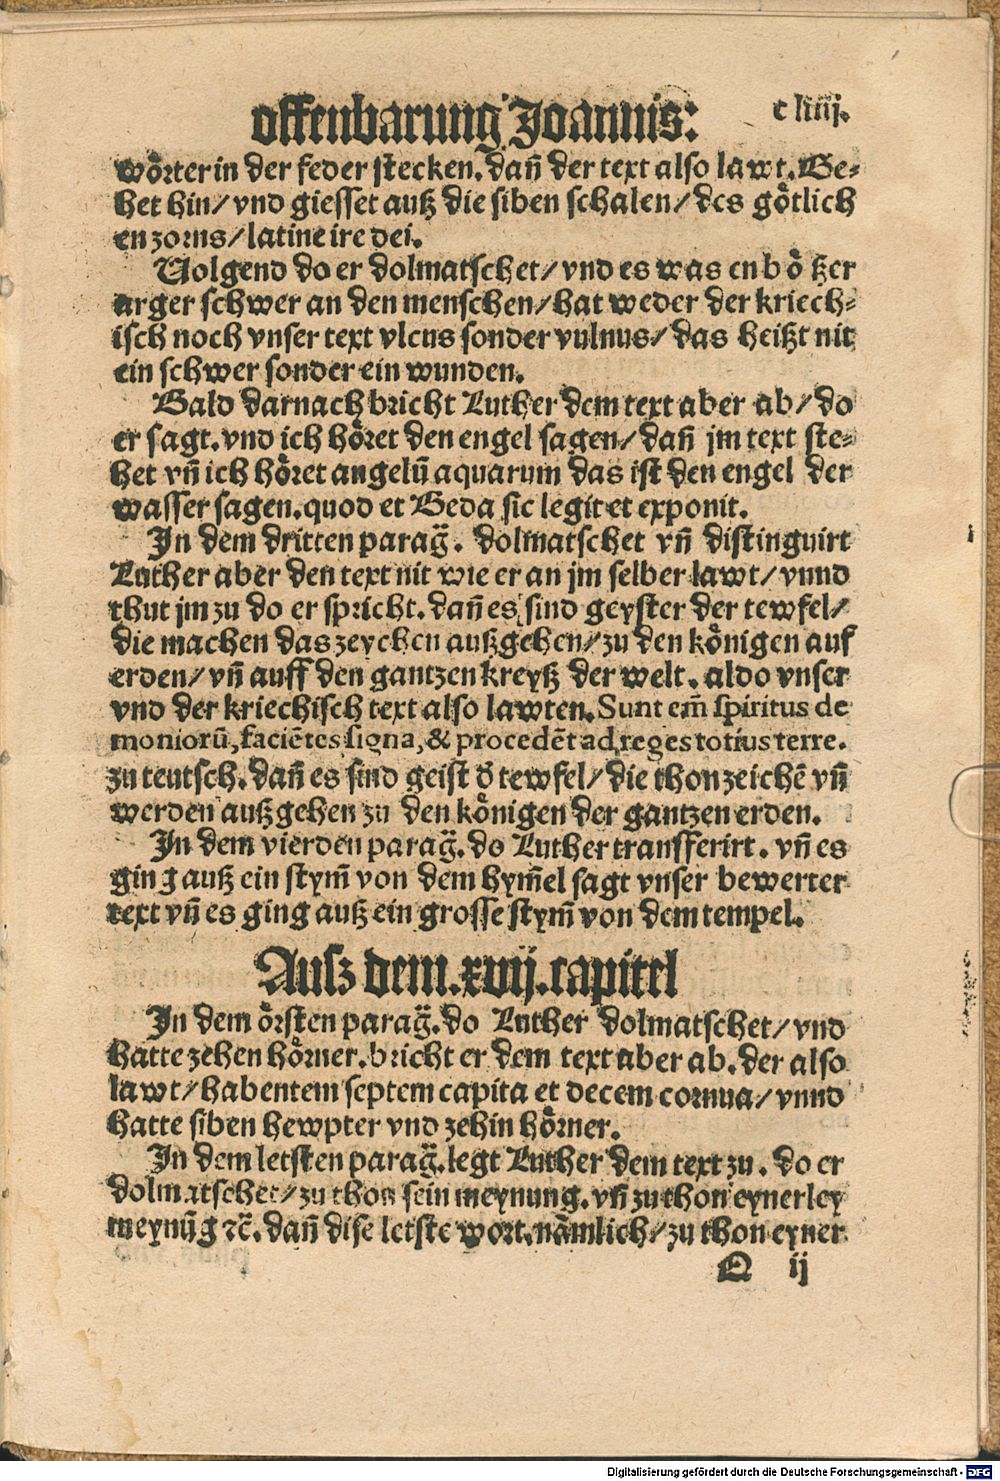 offenbarung Joannis: c liiij.
wörter in der feder stecken. dañ der text also lawt. Ge-
het hin/ vnd giesset auß die siben schalen/ des götlich
en zorns/ latine ire dei.
Volgend do er dolmatschet/ vnd es was en bößer
arger schwer an den menschen/ hat weder der kriech-
isch noch vnser text vlcus sonder vulnus/ das heißt nit
ein schwer sonder ein wunden.
Bald darnach bricht Luther dem text aber ab/ do
er sagt. vnd ich höret den engel sagen/ dañ jm text ste-
het vñ ich höret angelū aquarum das ist den engel der
wasser sagen. quod et Beda sic legit et exponit.
In dem dritten parag̃. dolmatschet vñ distinguirt
Luther aber den text nit wie er an jm selber lawt/ vnnd
thut jm zu do er spricht. dañ es sind geyster der tewfel/
die machen das zeychen außgehen/ zu den königen auf
erden/ vñ auff den gantzen kreyß der welt. aldo vnser
vnd der kriechisch text also lawten. Sunt em̃ spiritus de
moniorū, faciētes signa, & procedēt ad reges totius terre.
zu teutsch. dañ es sind geist d̕ tewfel/ die thon zeichē vñ
werden außgehen zu den königen der gantzen erden.
In dem vierden parag̃. do Luther transfferirt. vñ es
ging auß ein stym̃ von dem hym̃el sagt vnser bewerter
text vñ es ging auß ein grosse stym̃ von dem tempel.
Ausz dem. xvij. capitel
In dem örsten parag̃. do Luther dolmatschet/ vnd
hatte zehen hörner. bricht er dem text aber ab. der also
lawt/ habentem septem capita et decem cornua/ vnnd
hatte siben hewpter vnd zehin hörner.
In dem letsten parag̃. legt Luther dem text zu. do er
dolmatschet/ zu thon sein meynung. vñ zu thon eynerley
meynūg ꝛc̄. dañ dise letste wort. nämlich/ zu thon eyner
Q ij
Digitalisierung gefördert durch die Deutsche Forschungsgemeinschaft - DFG